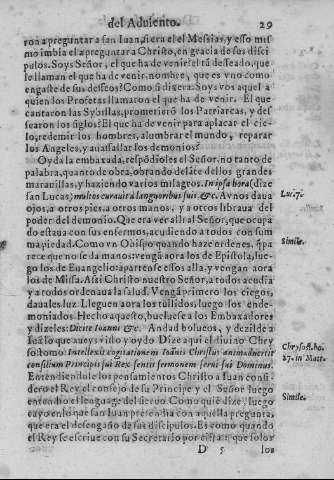 del Aduiento. 29
ron a preguntar a san Iuan, si era el el Messias, y esso mis
mo imbia el a preguntar a Christo, en gracia de sus disci
pulos. Soys Señor, el que ha de venir? el tā deseado, que
le llaman el que ha de venir, nombre, que es vno como
engaste de sus desseos? Como si dixera: Soys vos aquel a
quien los Profetas llamaron el que ha de venir. El que
cantaron las Sybillas, prometierō los Patriarcas, y des
searon los siglos? El que ha de venir para aplacar el cie-
lo, redemir los hombres, alumbrar el mundo, reparar
los Angeles, y auassallar los demonios?
Oyda la embaxada, respōdioles el Señor, no tanto de
palabra, quanto de obra, obrando delāte dellos grandes
marauillas, y haziendo varios milagros. In ipsa hora (dize
san Lucas) multos curauit à languoribus suis, &c. A vnos daua
Luc. 7.
ojos, a otros pies, a otros manos, y a otros libraua del
poder del demonio. Que era ver alli al Señor, que ocupa
do estaua con sus enfermos, acudiendo a todos con sum
ma piedad. Como vn Obispo quando haze ordenes, q̄ pa
Simile.
rece que no se da manos: vengā aora los de Epistola, lue-
go los de Euangelio: apartense essos alla, y vengan aora
los de Missa. Assi Christo nuestro Señor, a todos acudia,
y a todos ordenaua la salud. Vengā primero los ciegos,
dauales luz. Lleguen aora los tullidos, luego los ende-
moniados. Hecho aquesto, bueluese a los Embaxadores
y dizeles: Dicite Ioanni &c. Andad bolueos, y dezilde a
Iuā lo que aueys visto y oydo. Dize aqui el diuino Chry
sostomo: Intellexit cogitationem Ioānis Christus animaduertit
Chrysost. ho.
consilium Principis sui Rex, sensit sermonem serui sui Dominus.
27. in Matt.
Entendiendole los pensamientos Christo a Iuan consi-
dero el Rey el consejo de su Principe y el Señor luego
entendio el lenguage del sieruo. Como quiē dize, luego
Simile.
cayo en lo que san Iuan pretendia con aquella pregunta,
que era el desengaño de sus discipulos. Es como quando
el Rey se escriue con su Secretario por cifra: que solos
D 5 los